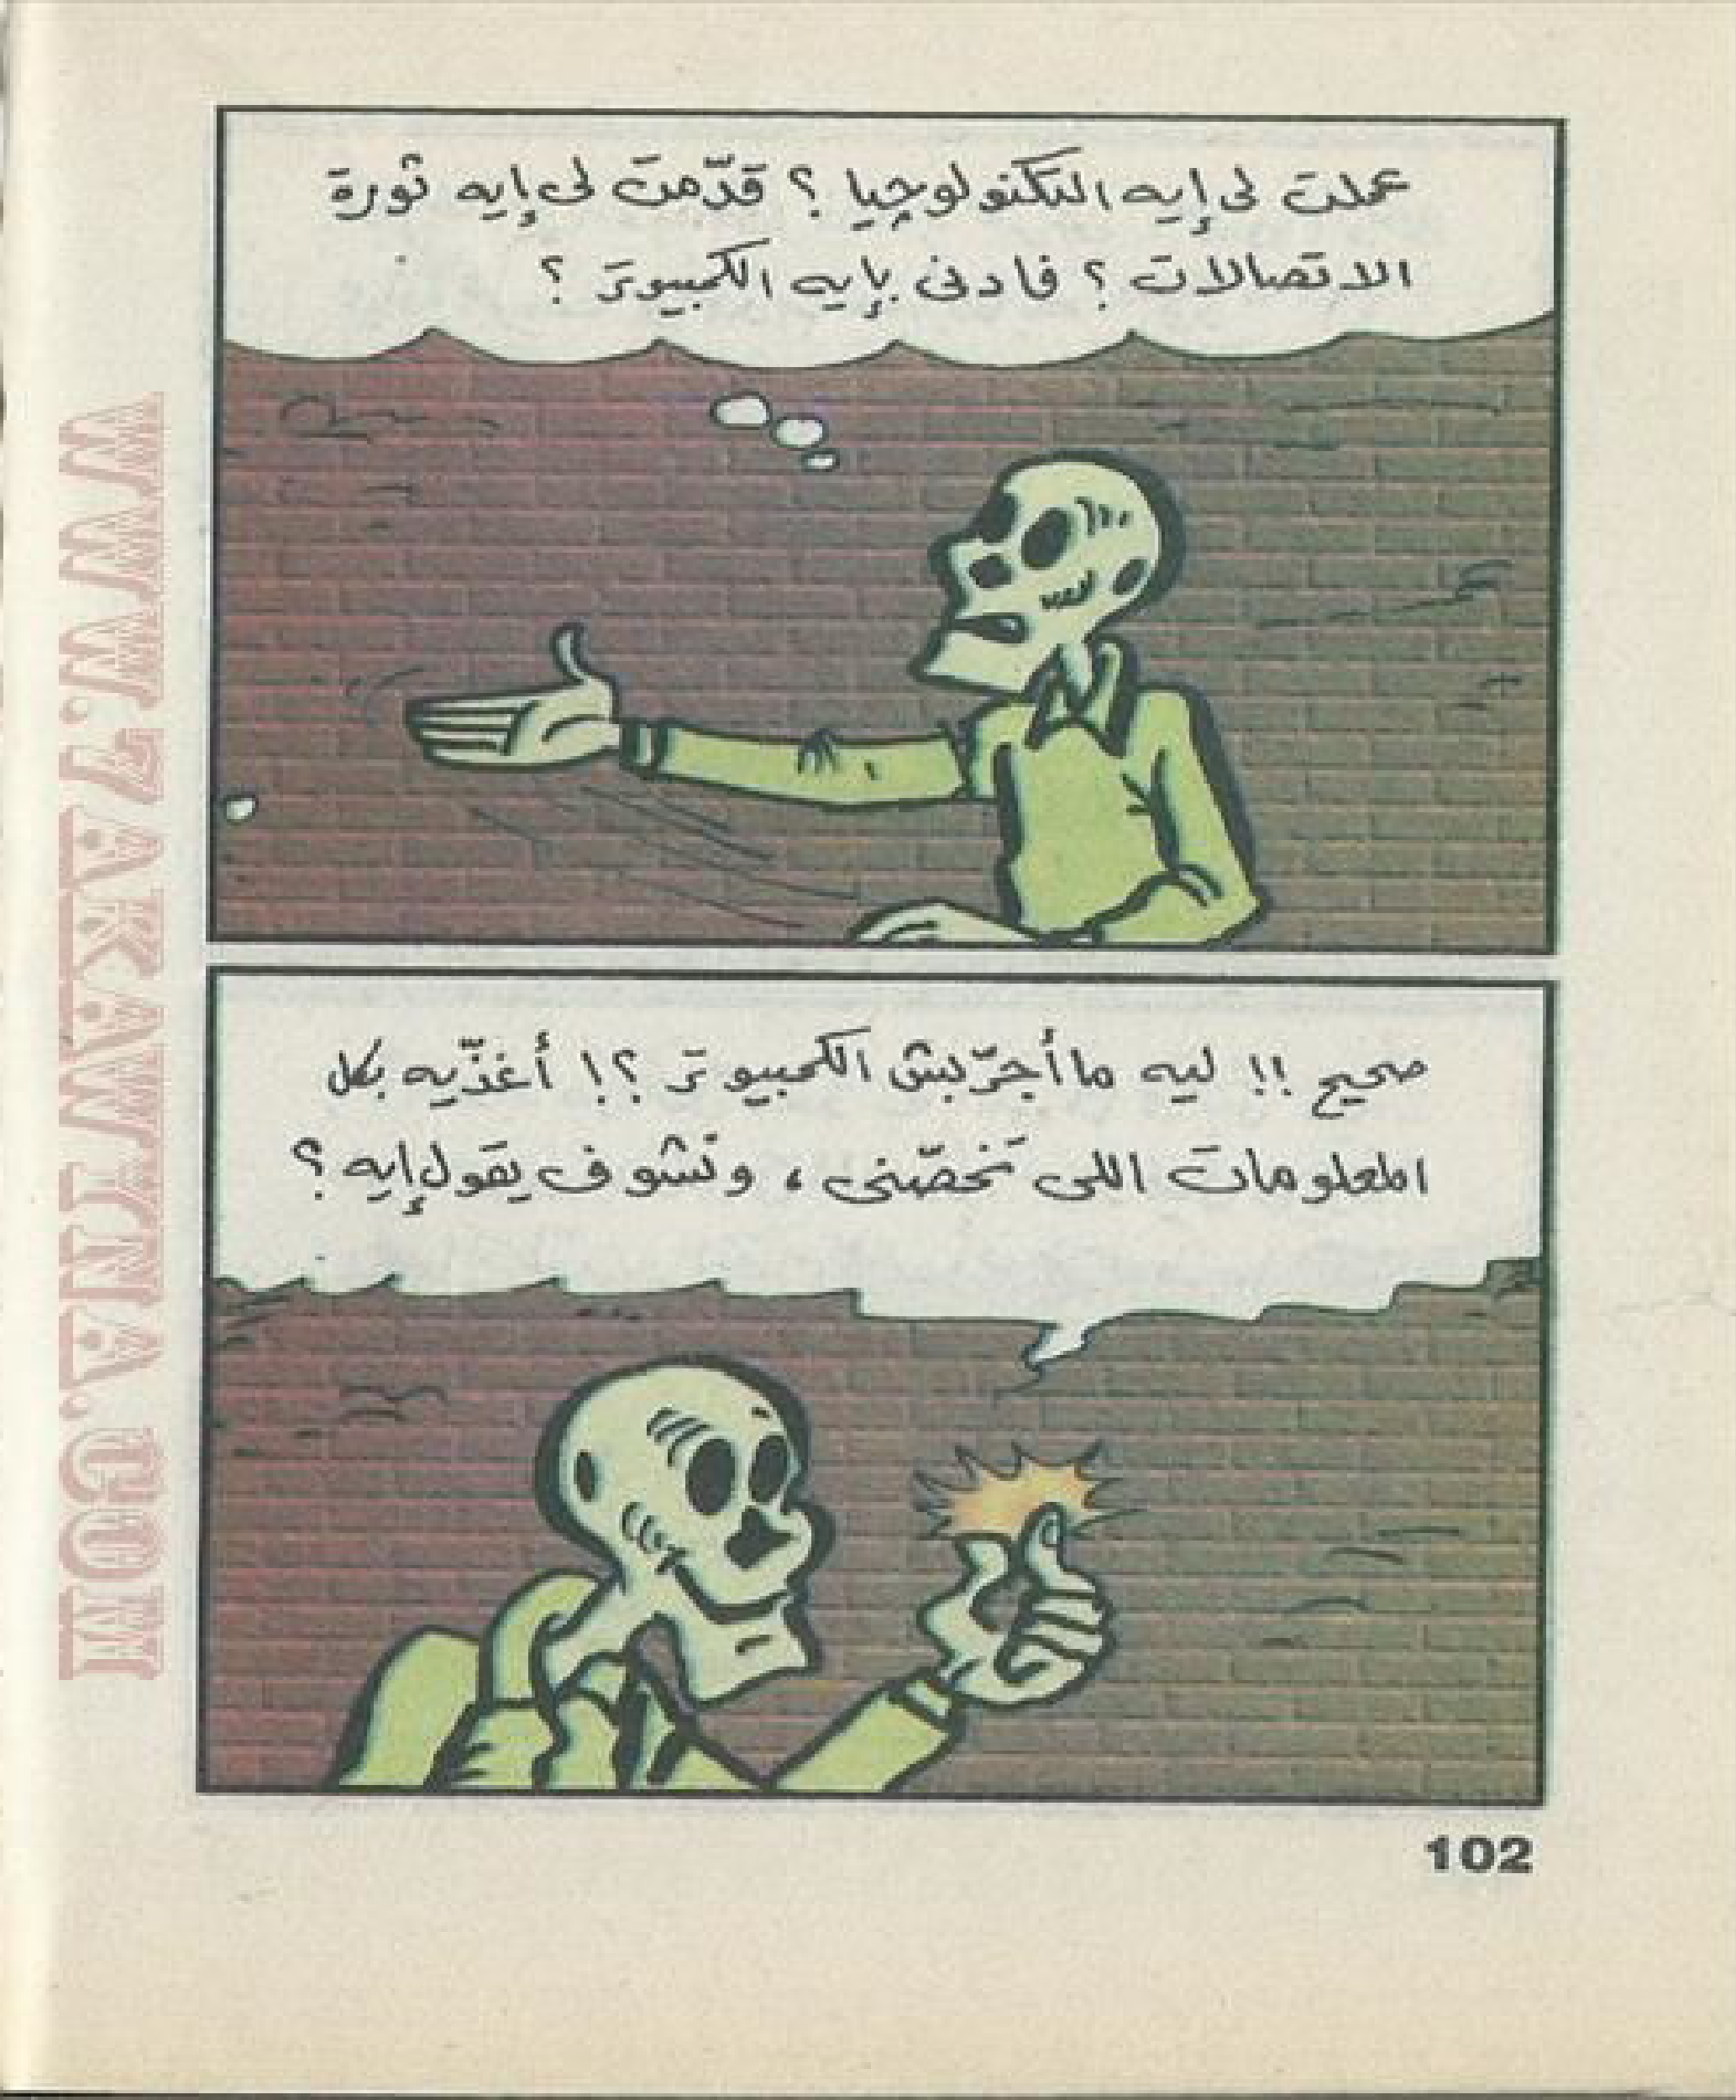 عملت لى إيه التكنولوچيا ؟ قدّمت لى إيه ثورة
الاتصالات ؟ فادنى بإيه الكمبيوتر ؟
صحيح !! ليه ما أجرّبش الكمبيوتر ؟! أغذّيه بكل
المعلومات اللى تخصّنى ، ونشوف يقول إيه ؟
102
WWW.7AKAWITNA.COM